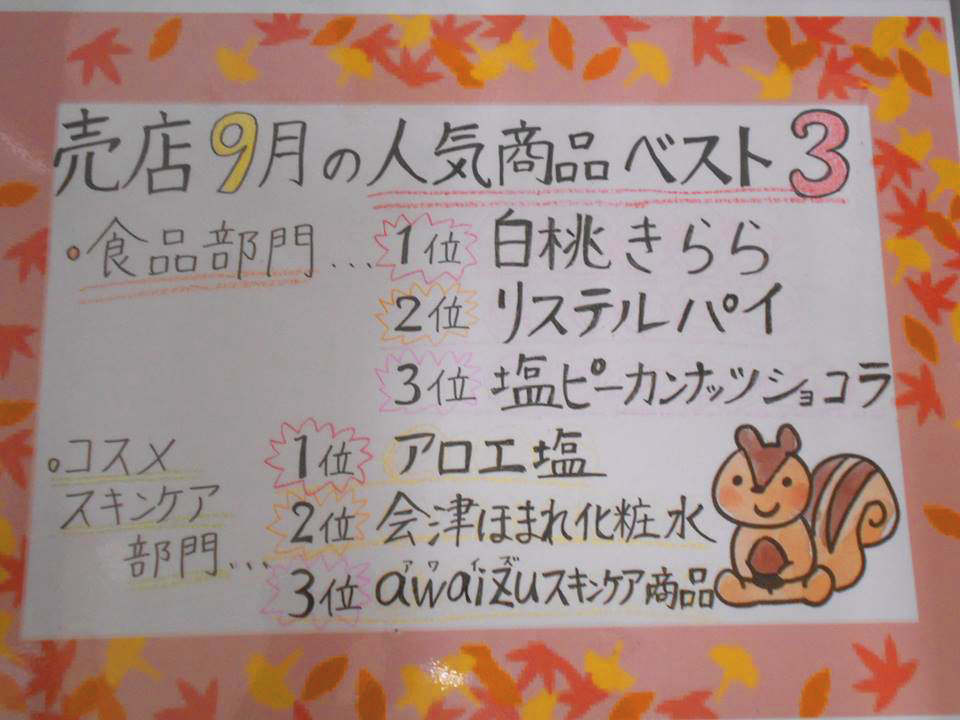 売店9月の人気商品ベスト3
・食品部門... 1位 白桃きらら
2位 リステルパイ
3位 塩ピーカンナッツショコラ
・コスメ
スキンケア
部門...
1位 アロエ塩
2位 会津ほまれ化粧水
アワイズ
3位 awaizuスキンケア商品